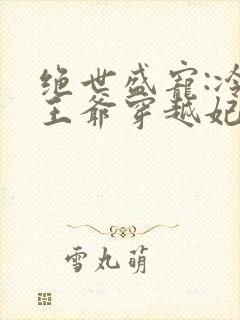 绝世盛宠:冷
王爷穿越妃
雪丸萌